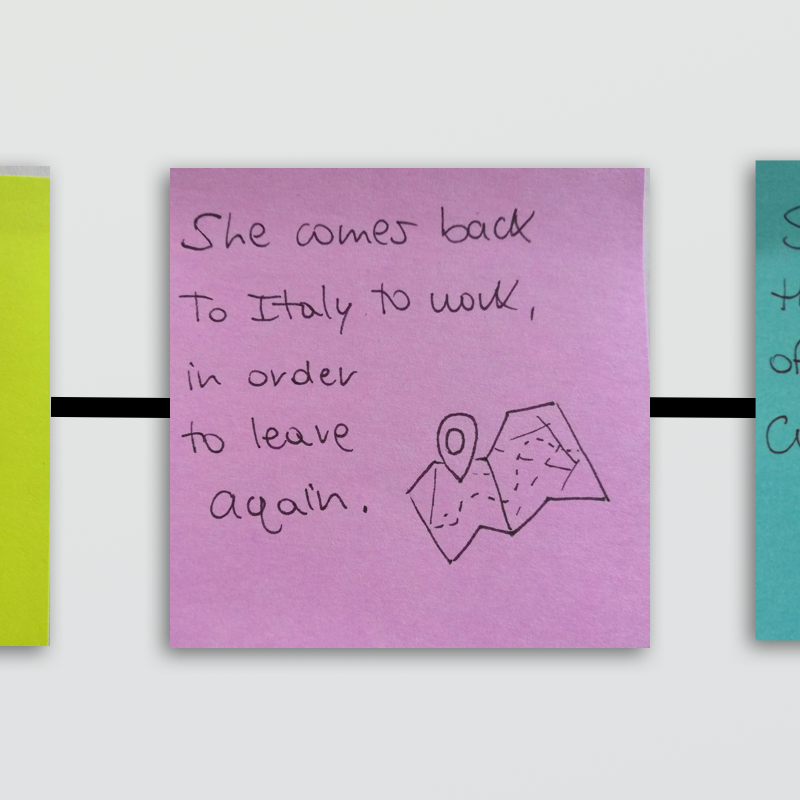 She comes back
To Italy to work,
in order
to leave
again.
S
th
of
Cu